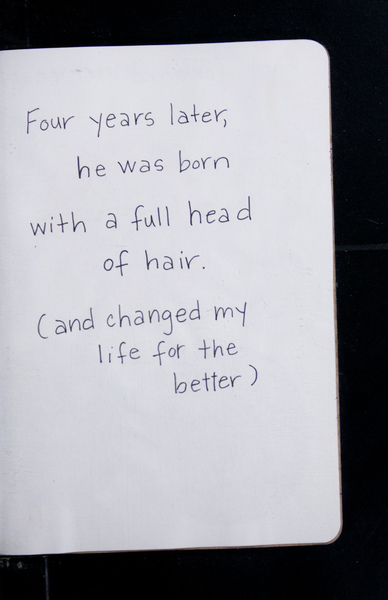 Four years later,
he was born
with a full head
of hair.
(and changed my
life for the
better)